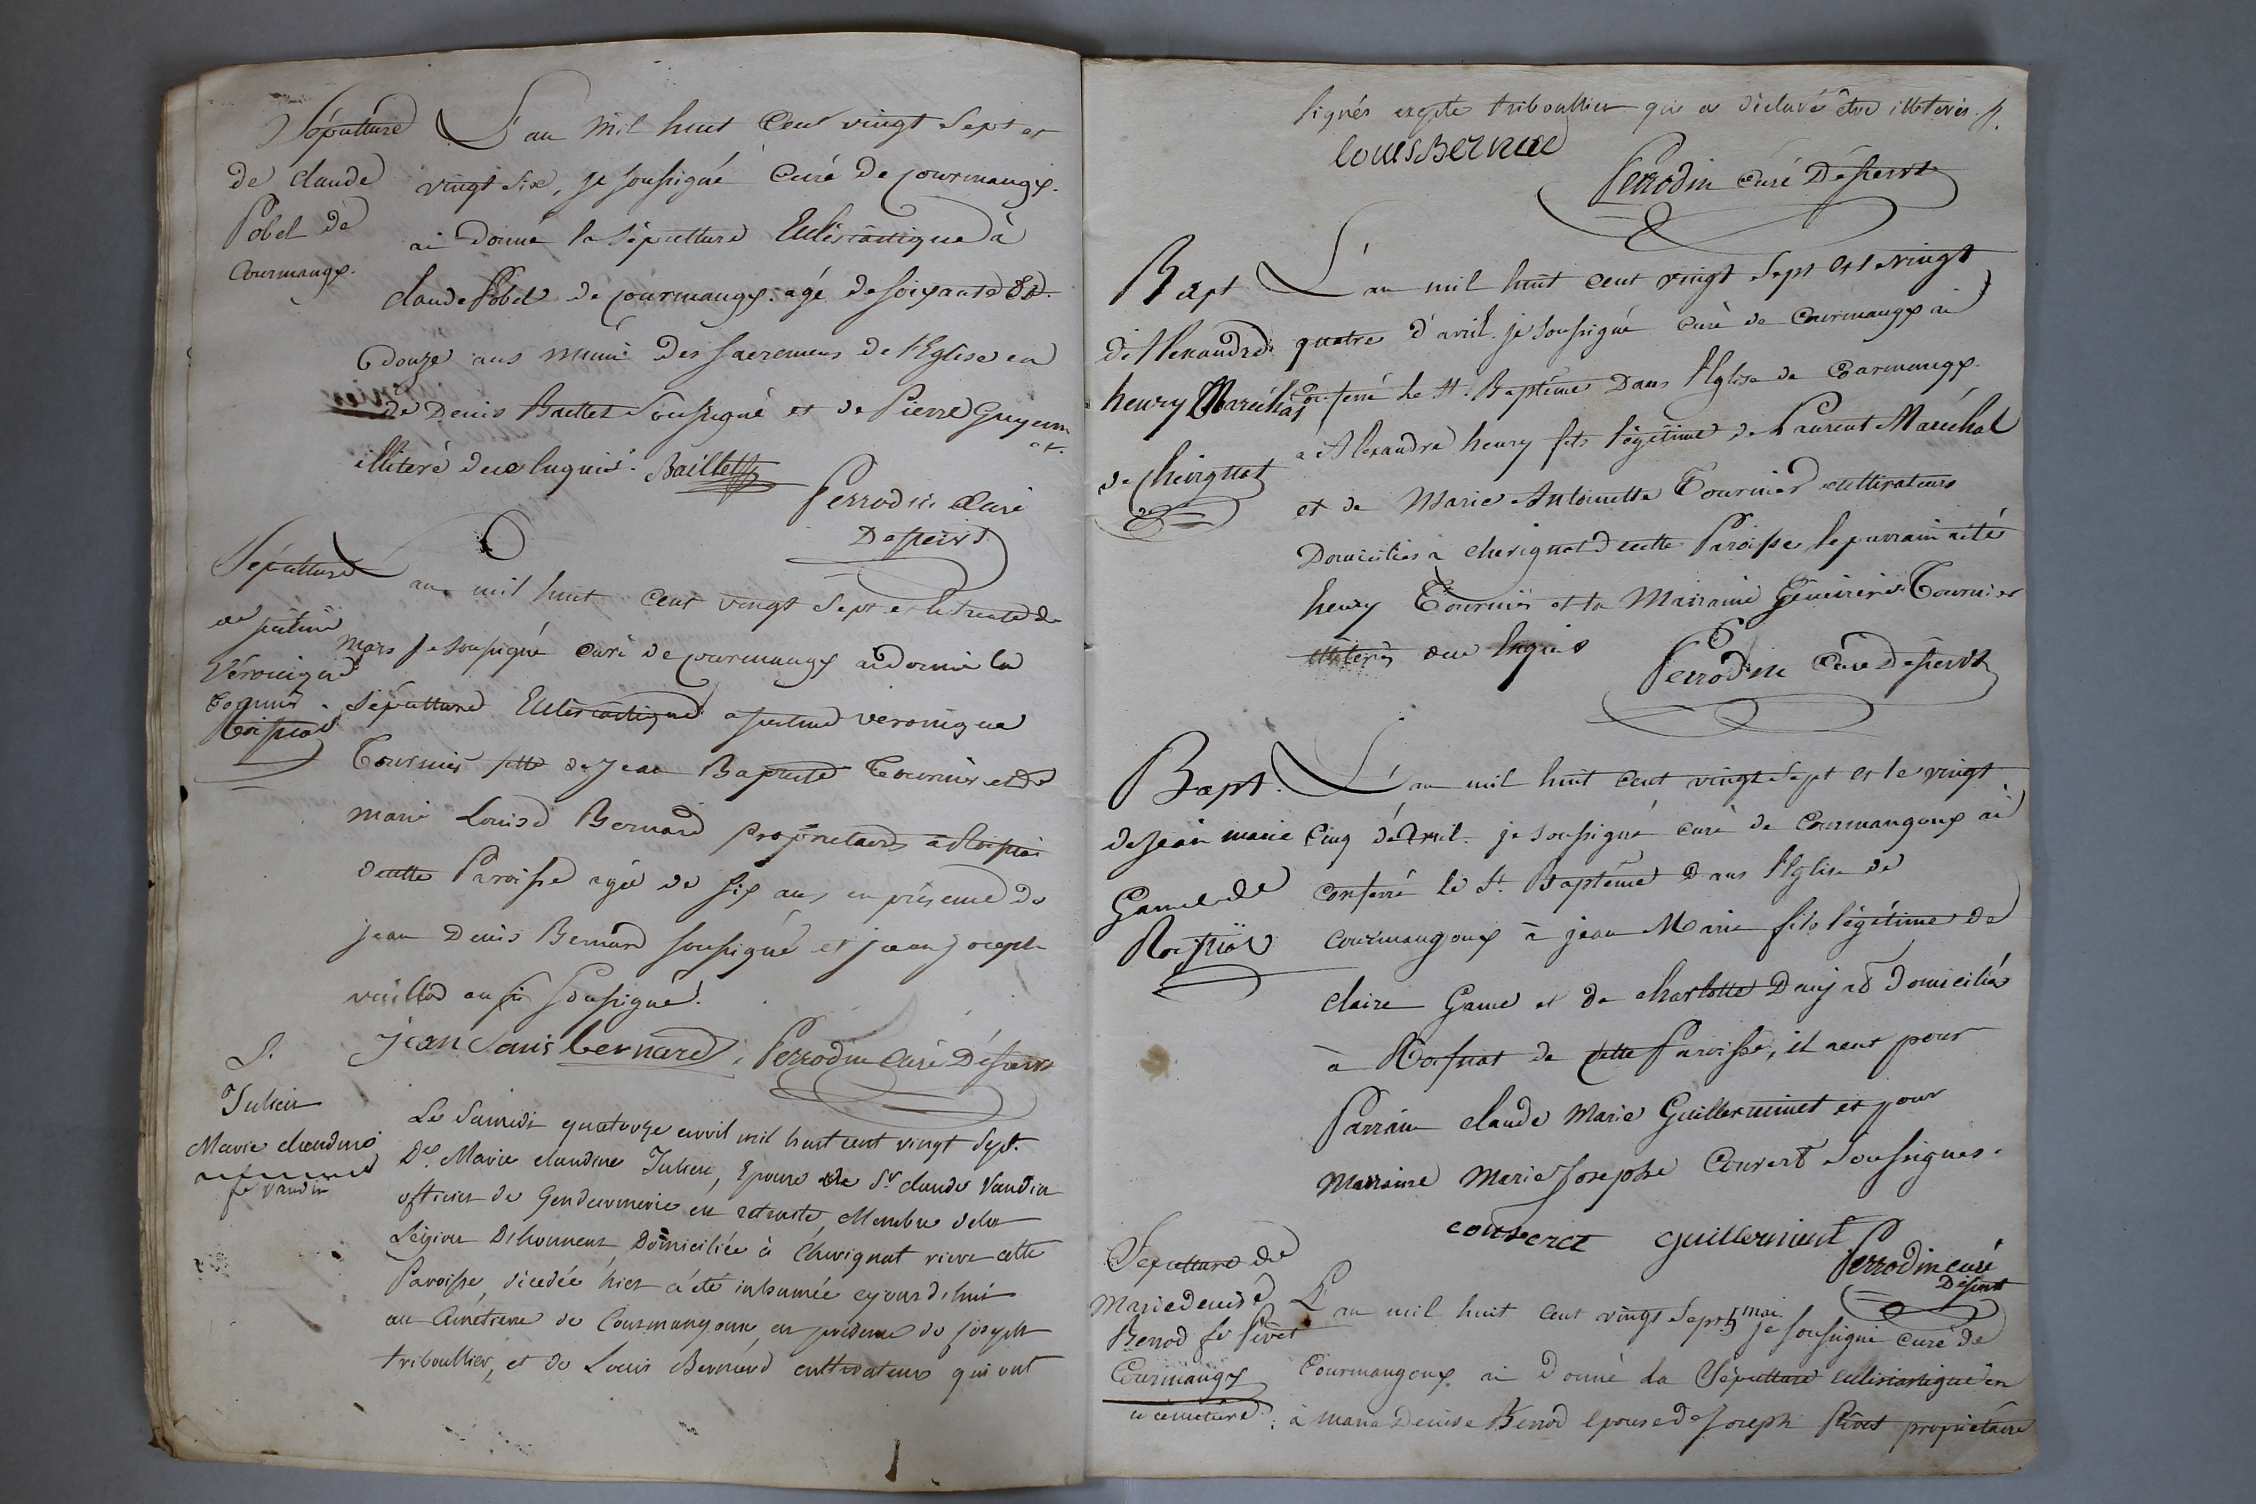 Sépulture
de claude
Pobel de
Courmangx.
L'an mil huit cent vingt sept et
vingt six, je soussigné curé de courmangx.
ai donné la sépulture Eclésiastique à
claude Pobel de courmangx. agé de soixante et
douze ans muni des sacremens de l'Eglise en
de Denis Baillet soussigné et de Pierre Guyenn
et.
illiteré dece luquis. Baillet
Perrodin curé
Desservt
Sépulture
de justine
Véronique
Tournier
Roissiat
L'an mil huit cent vingt sept et le trente de
Mars je soussigné curé de courmangx ai donné la
sépulture Eclésiastique a justine veronique
Tournier fille de Jean Baptiste Tournier et de
marie Louise Bernard propriétaires à Roissiat
de cette Paroisse agée de six ans, en présence de
jean Denis Bernard soussigné et jean joseph
vuillod aussi soussigné.
jean Louis bernard, Perrodin curé Desservt
S.
Julien
Marie claudine
fe vaudin
Le samedi quatorze avril mil huit cent vingt sept.
De. Marie claudine Julien, Epouse de Sr claude Vaudin
officier de Gendarmerie en retraite, Membre de la
Légion D'honneur Domiciliée à Chevignat riere cette
Paroisse, décedée hier a été inhumée ejourd'hui
au Cimetiere de Courmangoux en présence de joseph
triboullier, et de Louis Bernard cultivateurs qui ont
signés excepte triboullier qui a déclaré être illeteré.
louis Bernard
Perrodin curé Desservt
Bapt
d'Alexandre
henry Maréchal
de Chevignat
L'an mil huit cent vingt sept et le vingt
quatre d'avril. je soussigné curé de Courmangx ai
conferré le St. Baptême dans l'Eglise de Courmangx.
a Alexandre henry fils légitime de Laurent Maréchal
et de Marie Antoinette Tournier cultivateurs
Domiciliés a chevignat de cette Paroisse, le parrain a été
henry Tournier et la Marraine Généviève Tournier
illiterés dece luquis
Perrodin curé Desservt
Bapt.
de jean marie
Game de
Roissiat
L'an mil huit cent vingt sept et le vingt
cinq d'avril. je soussigné curé de Courmangoux ai
conferré le St. Baptême dans l'Eglise de
courmangoux à jean Marie fils légitime de
claire Game et de charlotte Danjad Domiciliés
à Roissiat de cette Paroisse, il a eut pour
Parrain claude Marie Guillerminet et pour
Marraine Marie Josephe Convert soussignés.
convert guillerminet Perrodin curé
Desservt
Sépulture de
Marie denise
Berrod fe Pivet
Courmangx
ce cimetière
L'an mil huit cent vingt sept 5 mai je soussigné curé de
Courmangoux ai donné la Sépulture eclésiastique en
à marie Denise Berrod epouse de Joseph Pivet propriétaire